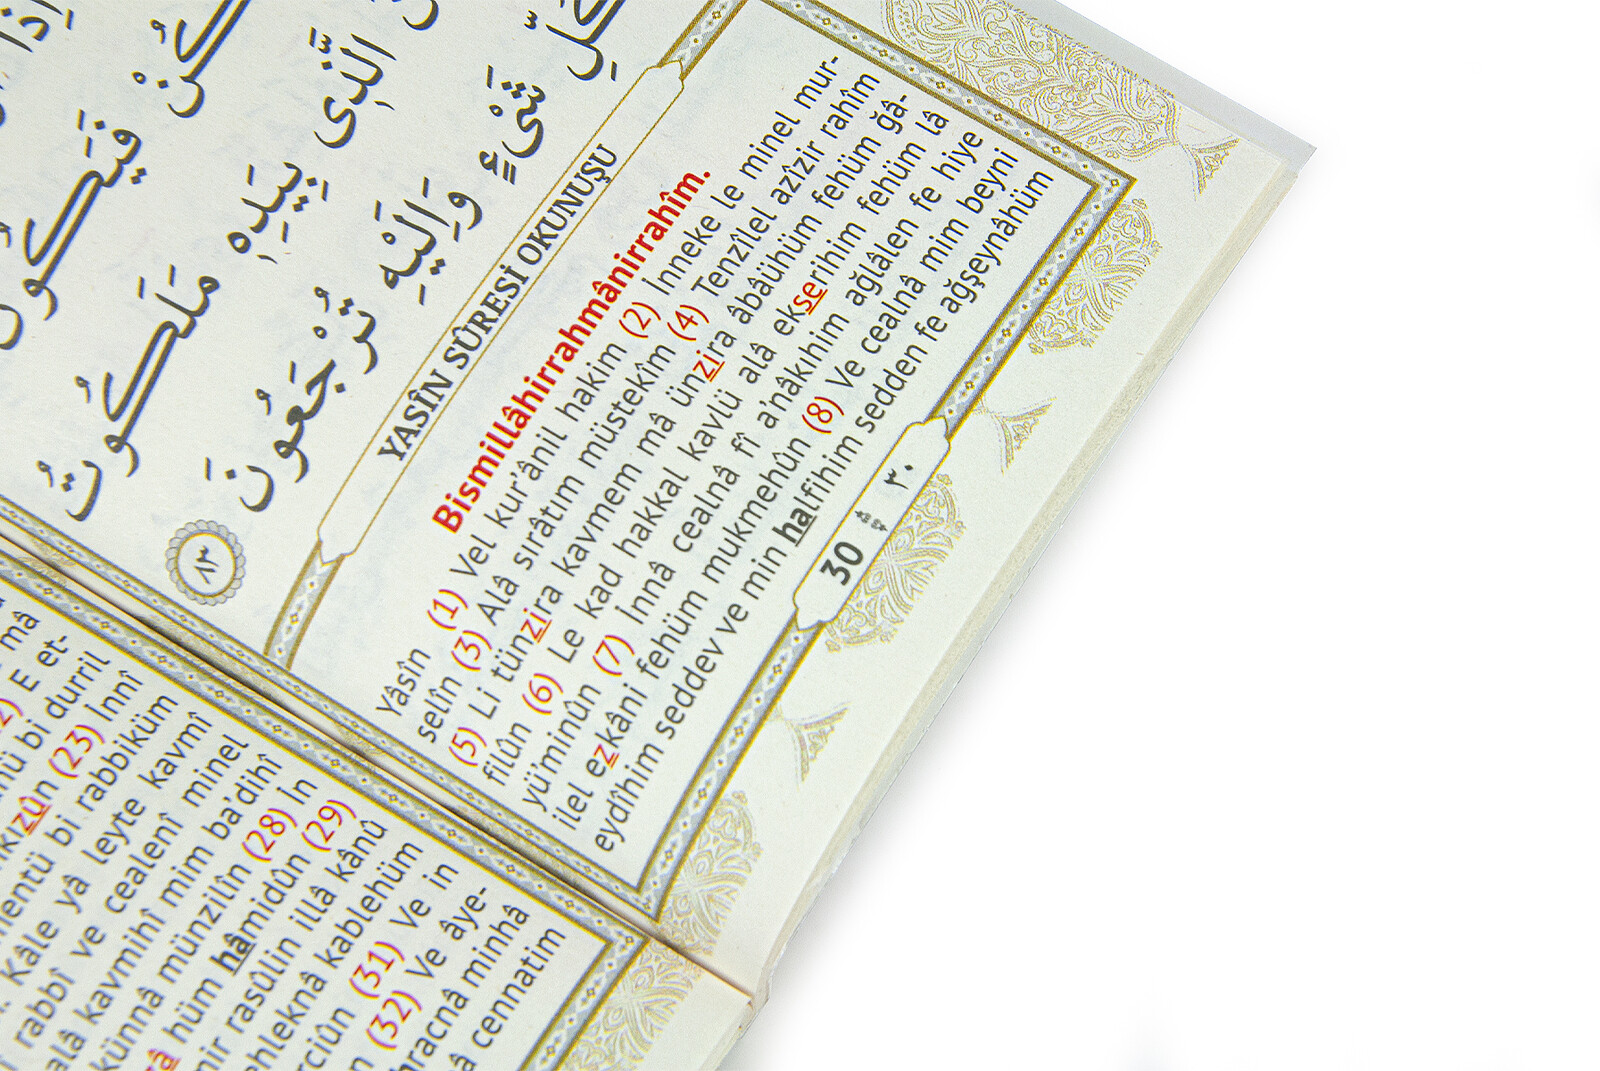 كُنْ فَيَكُونُ
الَّذِى بِيَدِهِ مَلَكُوتُ
كُلِّ شَىْءٍ وَاِلَيْهِ تُرْجَعُونَ
٨٣
YASÎN SÛRESİ OKUNUŞU
Bismillâhirrahmânirrahîm.
Yâsîn (1) Vel kur'ânil hakim (2) İnneke le minel mur-
selîn (3) Alâ sırâtım müstekîm (4) Tenzîlel azîzir rahîm
(5) Li tünzira kavmem mâ ünzira âbâühüm fehüm ğâ-
filûn (6) Le kad hakkal kavlü alâ ekserihim fehüm lâ
yü'minûn (7) İnnâ cealnâ fî a'nâkıhim ağlâlen fe hiye
ilel ezkâni fehüm mukmehûn (8) Ve cealnâ mim beyni
eydîhim seddev ve min halfihim sedden fe ağşeynâhüm
30 ٣٠
mâ
E et-
bi durril
(23) İnnî
bi rabbiküm
Kâle yâ leyte kavmî
rabbî ve cealenî minel
alâ kavmihî mim ba'dihî
künnâ münzilîn (28) İn
hüm hâmidûn (29)
rasûlin illâ kânû
ehleknâ kablehüm
(31) Ve in
(32) Ve âye-
minhâ
cennatim